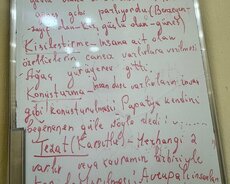 güneş gibi parlıyordu (Benzeyen-
saçı olan-kız, güçlü olan-güneş)
Kişileştirme - insana ait olan
özelliklerin cansız varlıklara verilmesi
Ağaç yürüyerek gitti.
Konuşturma - insan dışı varlıkların insan
gibi konuşturulması Papatya kendini
beğenenen güle söyle dedi:
Tezat (Karşıtlık) - Herhangi 2
varlık veya kavramın birbiriyle
Avrupalı insanlar